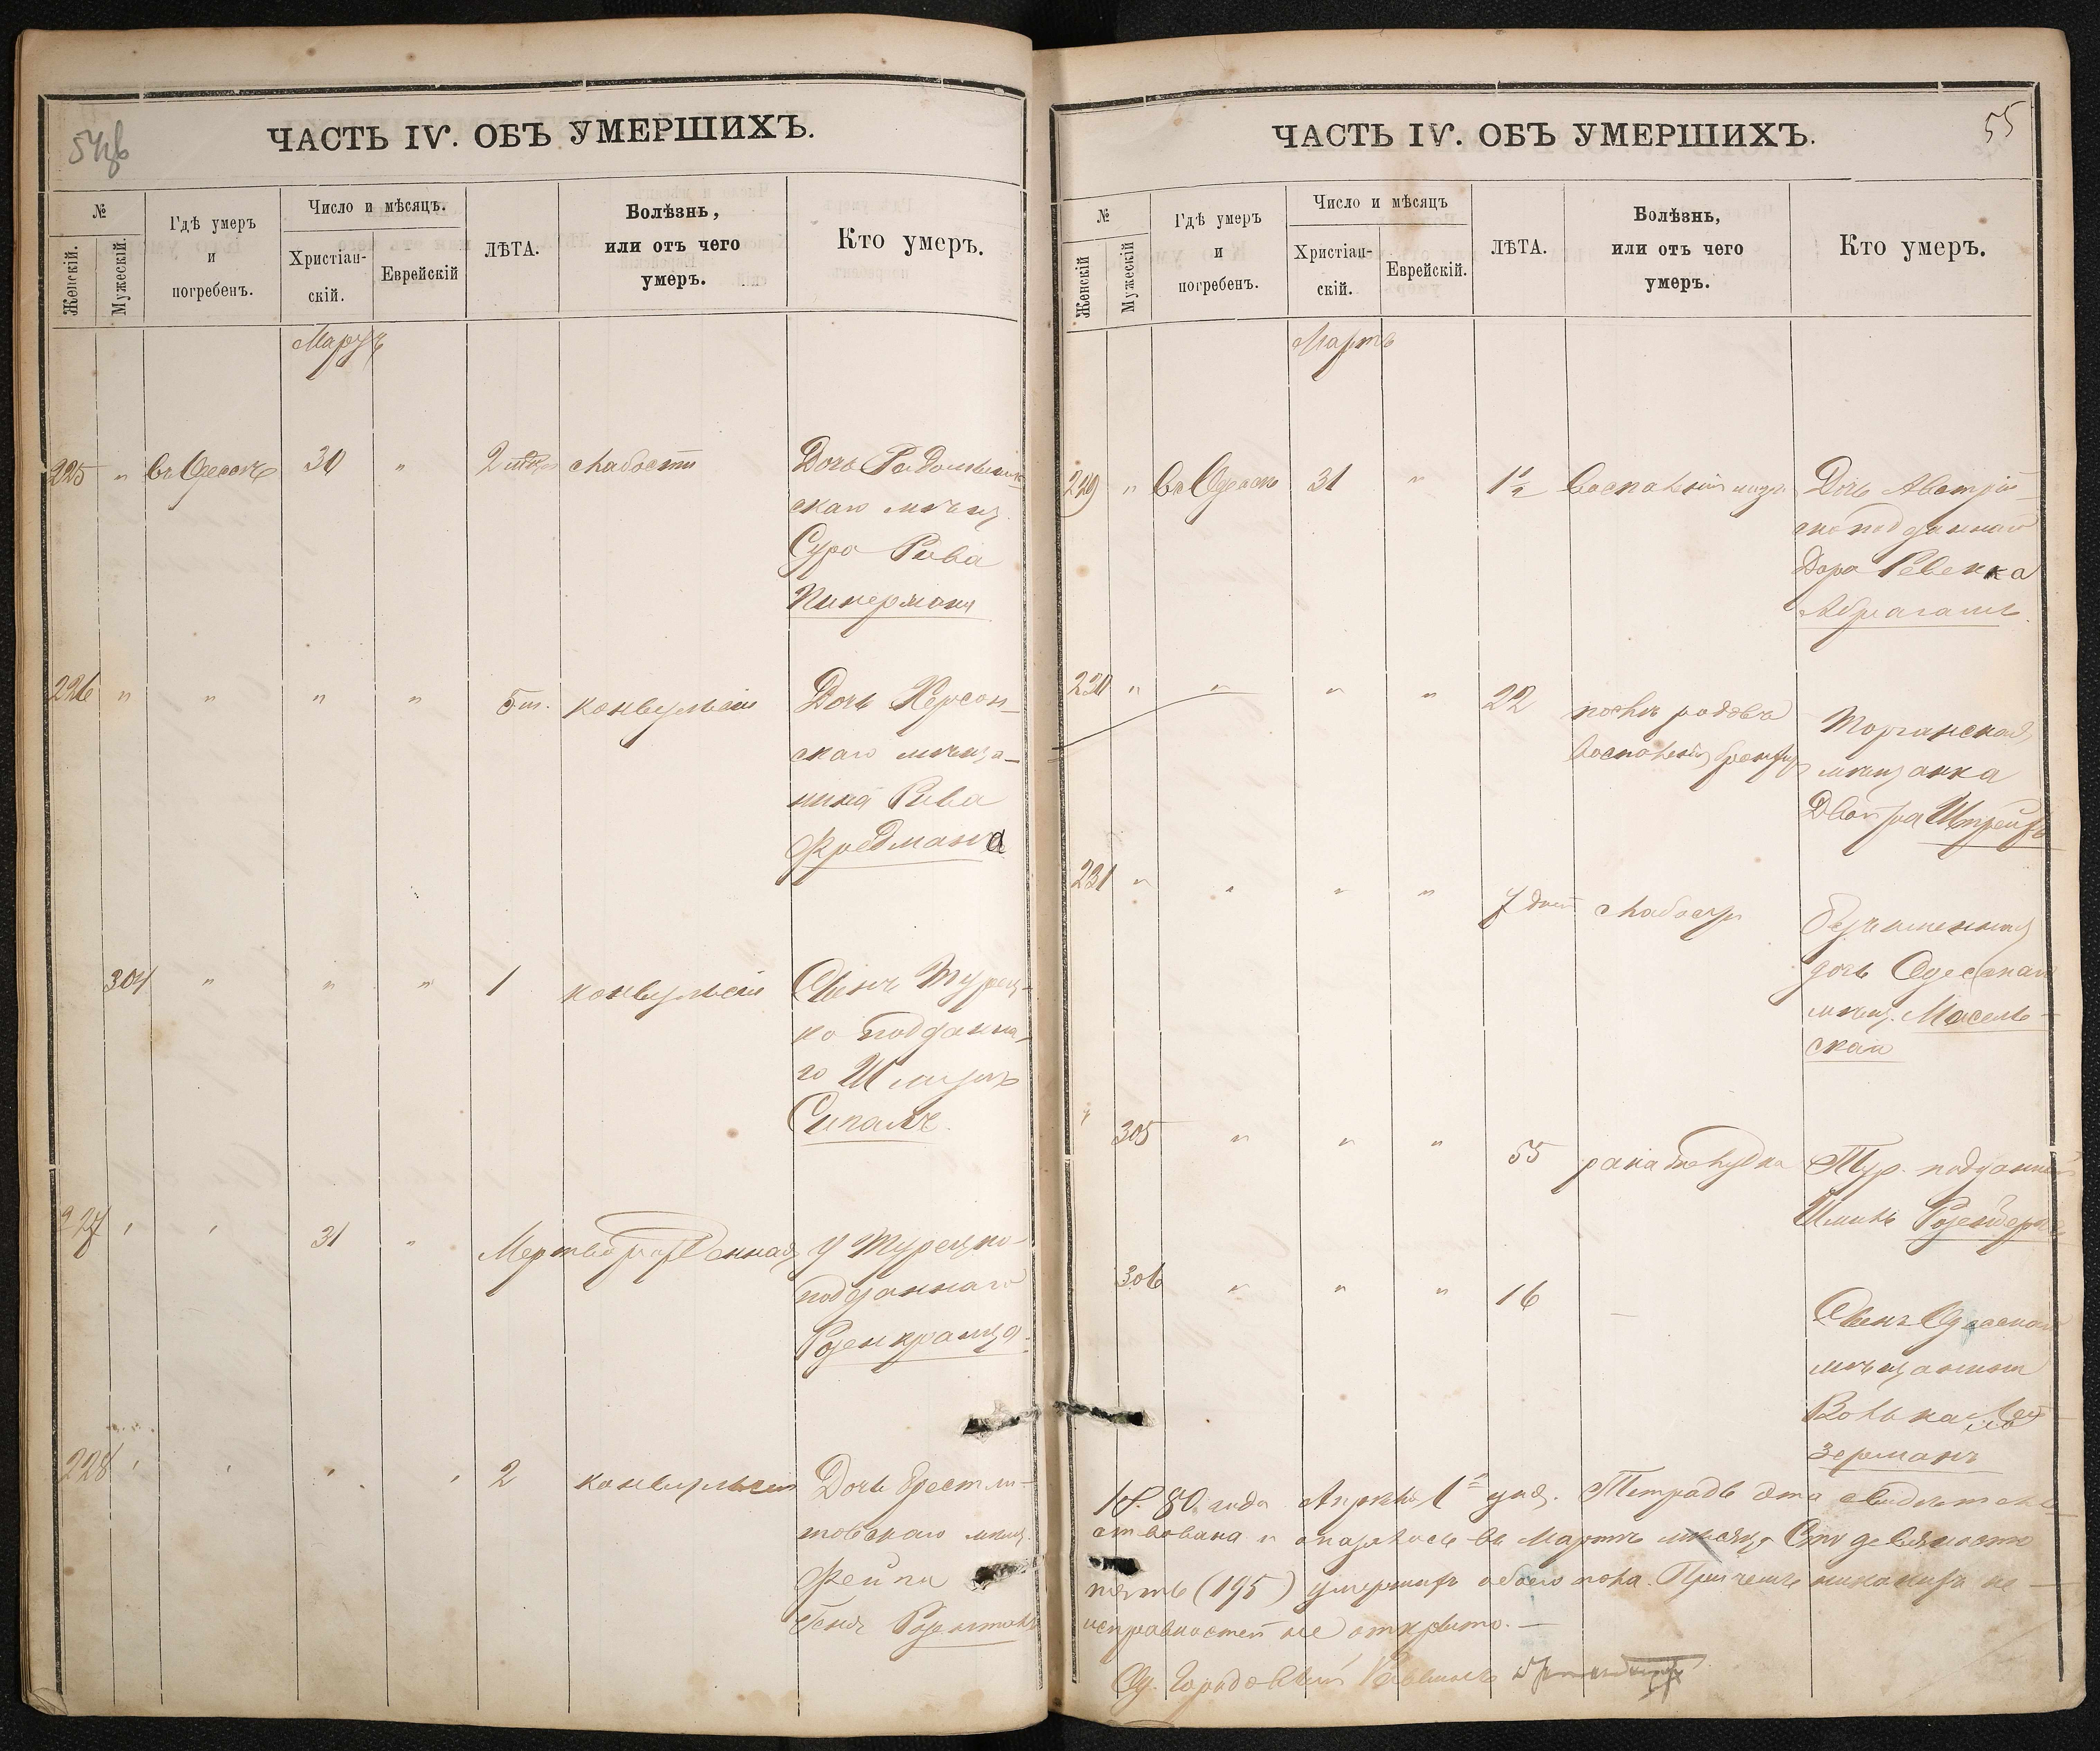 54об
ЧАСТЬ IV. ОБЪ УМЕРШИХЪ.
№
Женскій.
Мужескій.
Гдѣ умеръ
и
погребенъ.
Число и мѣсяцъ.
Христіан-
скій.
Еврейскій
ЛѢТА.
Болѣзнь,
или отъ чего
умеръ.
Кто умеръ.
Мартъ
225 " въ Одессѣ 30 " 2 слабости Дочь Радомысль-
скаго мѣщ.
Сура Рива
Пикерманъ
226 " " " " 5 м. конвульсіи Дочь Херсон-
скаго мѣща-
нина Рива
Фридмана
304 " " " 1 конвульсіи Сынъ Турец-
ко подданна-
го
Сигалъ.
227 " " 31 " Мертворожденная у Турецко-
подданнаго
Розенкранца.
228 " " " " 2 конвульсіи Дочь Брестли-
товскаго мѣщ.
Фейга
Геня
55
ЧАСТЬ IV. ОБЪ УМЕРШИХЪ.
№
Женскій
Мужескій
Гдѣ умеръ
и
погребенъ.
Число и мѣсяцъ
Христіан-
скій.
Еврейскій.
ЛѢТА.
Болѣзнь,
или отъ чего
умеръ.
Кто умеръ.
Мартъ
229 " въ Одессѣ 31 " 1½ воспаленія Дочь Австрій-
скоподданнаго
Дора Ревекка
Абрагамъ.
230 " " " " 22 послѣ родовъ
воспаленія
мѣщанка
Двойра
231 " " " " 7 дней слабости безъименная
дочь Одесскаго
мѣщ. Масель-
ская
" 305 " " " 55 рака желудка Тур. подданный
306 " " " 16 — Сынъ Одесскаго
мѣщанина
Волька Лей-
зерманъ
1880 года Апрѣля 1 дня. Тетрадь эта свидѣтель-
ствована и оказалось въ Мартѣ мѣсяцѣ Сто девяносто
пять (195) умершихъ обоего пола. Причемъ никакихъ не-
исправностей не открыто. —
Од. Городовый Раввинъ